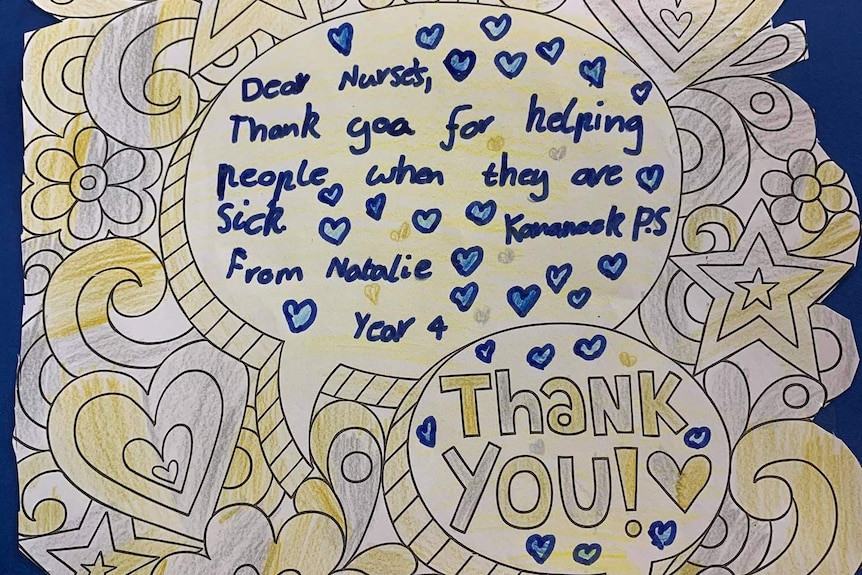 Dear Nurses,
Thank yoa for helping
people when they are
Sick Kananook P.S
From Natalie
Year 4
Thank
YOU!